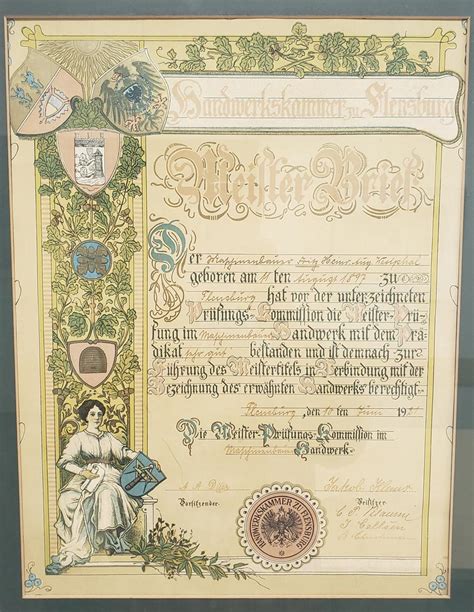 Handwerkskammer zu Flensburg
Meister Brief
Der Maschinenbauer Fritz Heinr. Aug.
geboren am 11 ten August 189 zu
Flensburg hat vor der unterzeichneten
Prüfungs-Kommission die Meister-Prü-
fung im Maschinenbau Handwerk mit dem Prä-
dikat sehr gut bestanden und ist demnach zur
Führung des Meistertitels in Verbindung mit der
Bezeichnung des erwähnten Handwerks berechtigt.
Flensburg, den 10 ten Juni 19
Die Meister-Prüfungs-Kommission im
Maschinenbau Handwerk.
Jakob
Vorsitzender. Beisitzer.
HANDWERKSKAMMER ZU FLENSBURG